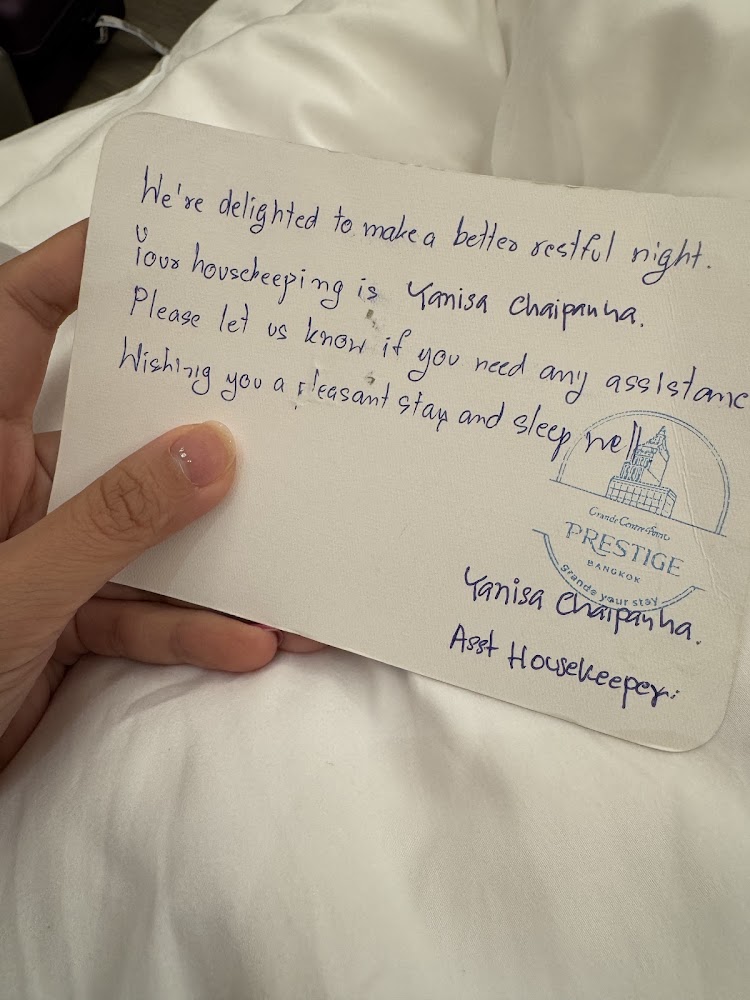 We're delighted to make a better restful night.
Your housekeeping is Yanisa Chaipanha.
Please let us know if you need any assistanc
Wishing you a pleasant stay and sleep well
Grande Centre Point
PRESTIGE
BANGKOK
grande your stay
Yanisa Chaipanha.
Asst Housekeeper.